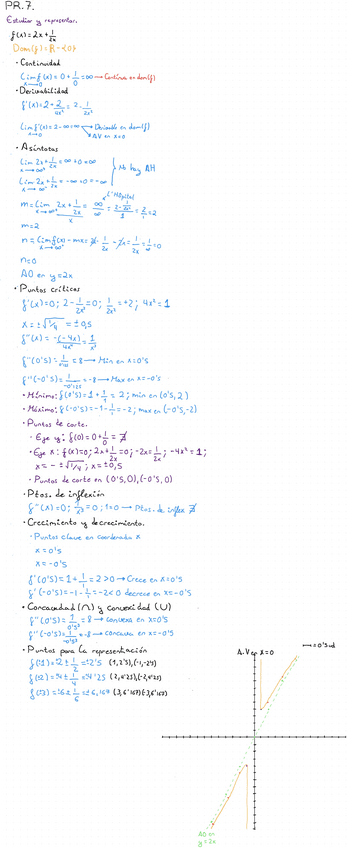 PR.7.
Estudiar y representar.
f(x)=2x+1/2x
Dom(f)=R-{0}
· Continuidad
Lim f(x)=0+1/0=∞ → Continua en dom(f)
x→0
· Derivabilidad
Lim f'(x)=2-∞=∞ → Derivable en dom(f)
x→0 → A.V en x=0
· Asíntotas
Lim 2x+1/2x=∞+0=∞
No hay AH
Lim 2x+1/2x=-∞+0=-∞
L'Hôpital
m=2
n=0
AO en y=2x
· Puntos críticos
f'(x)=0; 2-1/2x²=0; 1/2x²=+2; 4x²=1
x=±√1/4=±0,5
f''(0'5)= =8 → Min en x=0'5
f''(-0'5)= =-8 → Max en x=-0'5
· Mínimo: f(0'5)=1+1/1=2; min en (0'5,2)
· Máximo: f(-0'5)=-1-1/1=-2; max en (-0'5,-2)
· Puntos de corte.
· Eje y: f(0)=0+1/0=∄
· Eje x: f(x)=0; 2x+1/2x=0; -2x=1/2x; -4x²=1;
x=-±√1/4; x=±0,5
· Puntos de corte en (0'5,0),(-0'5,0)
· Ptos. de inflexión
f''(x)=0; 1/x³=0; 1=0 → Ptos. de inflex ∄
· Crecimiento y decrecimiento.
· Puntos clave en coordenada x
x=0'5
x=-0'5
f'(0'5)=1+1/1=2>0 → Crece en x=0'5
f'(-0'5)=-1-1/1=-2<0 decrece en x=-0'5
· Concavidad (∩) y convexidad (∪)
f''(0'5)=1/0'5³=8 → convexa en x=0'5
f''(-0'5)=1/-0'5³=-8 → concava en x=-0'5
· Puntos para la representación
A.V en x=0
AO en
y=2x